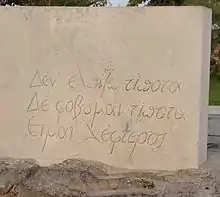 Δεν ελπίζω τίποτα
Δε φοβάμαι τίποτα
Είμαι λέφτερος